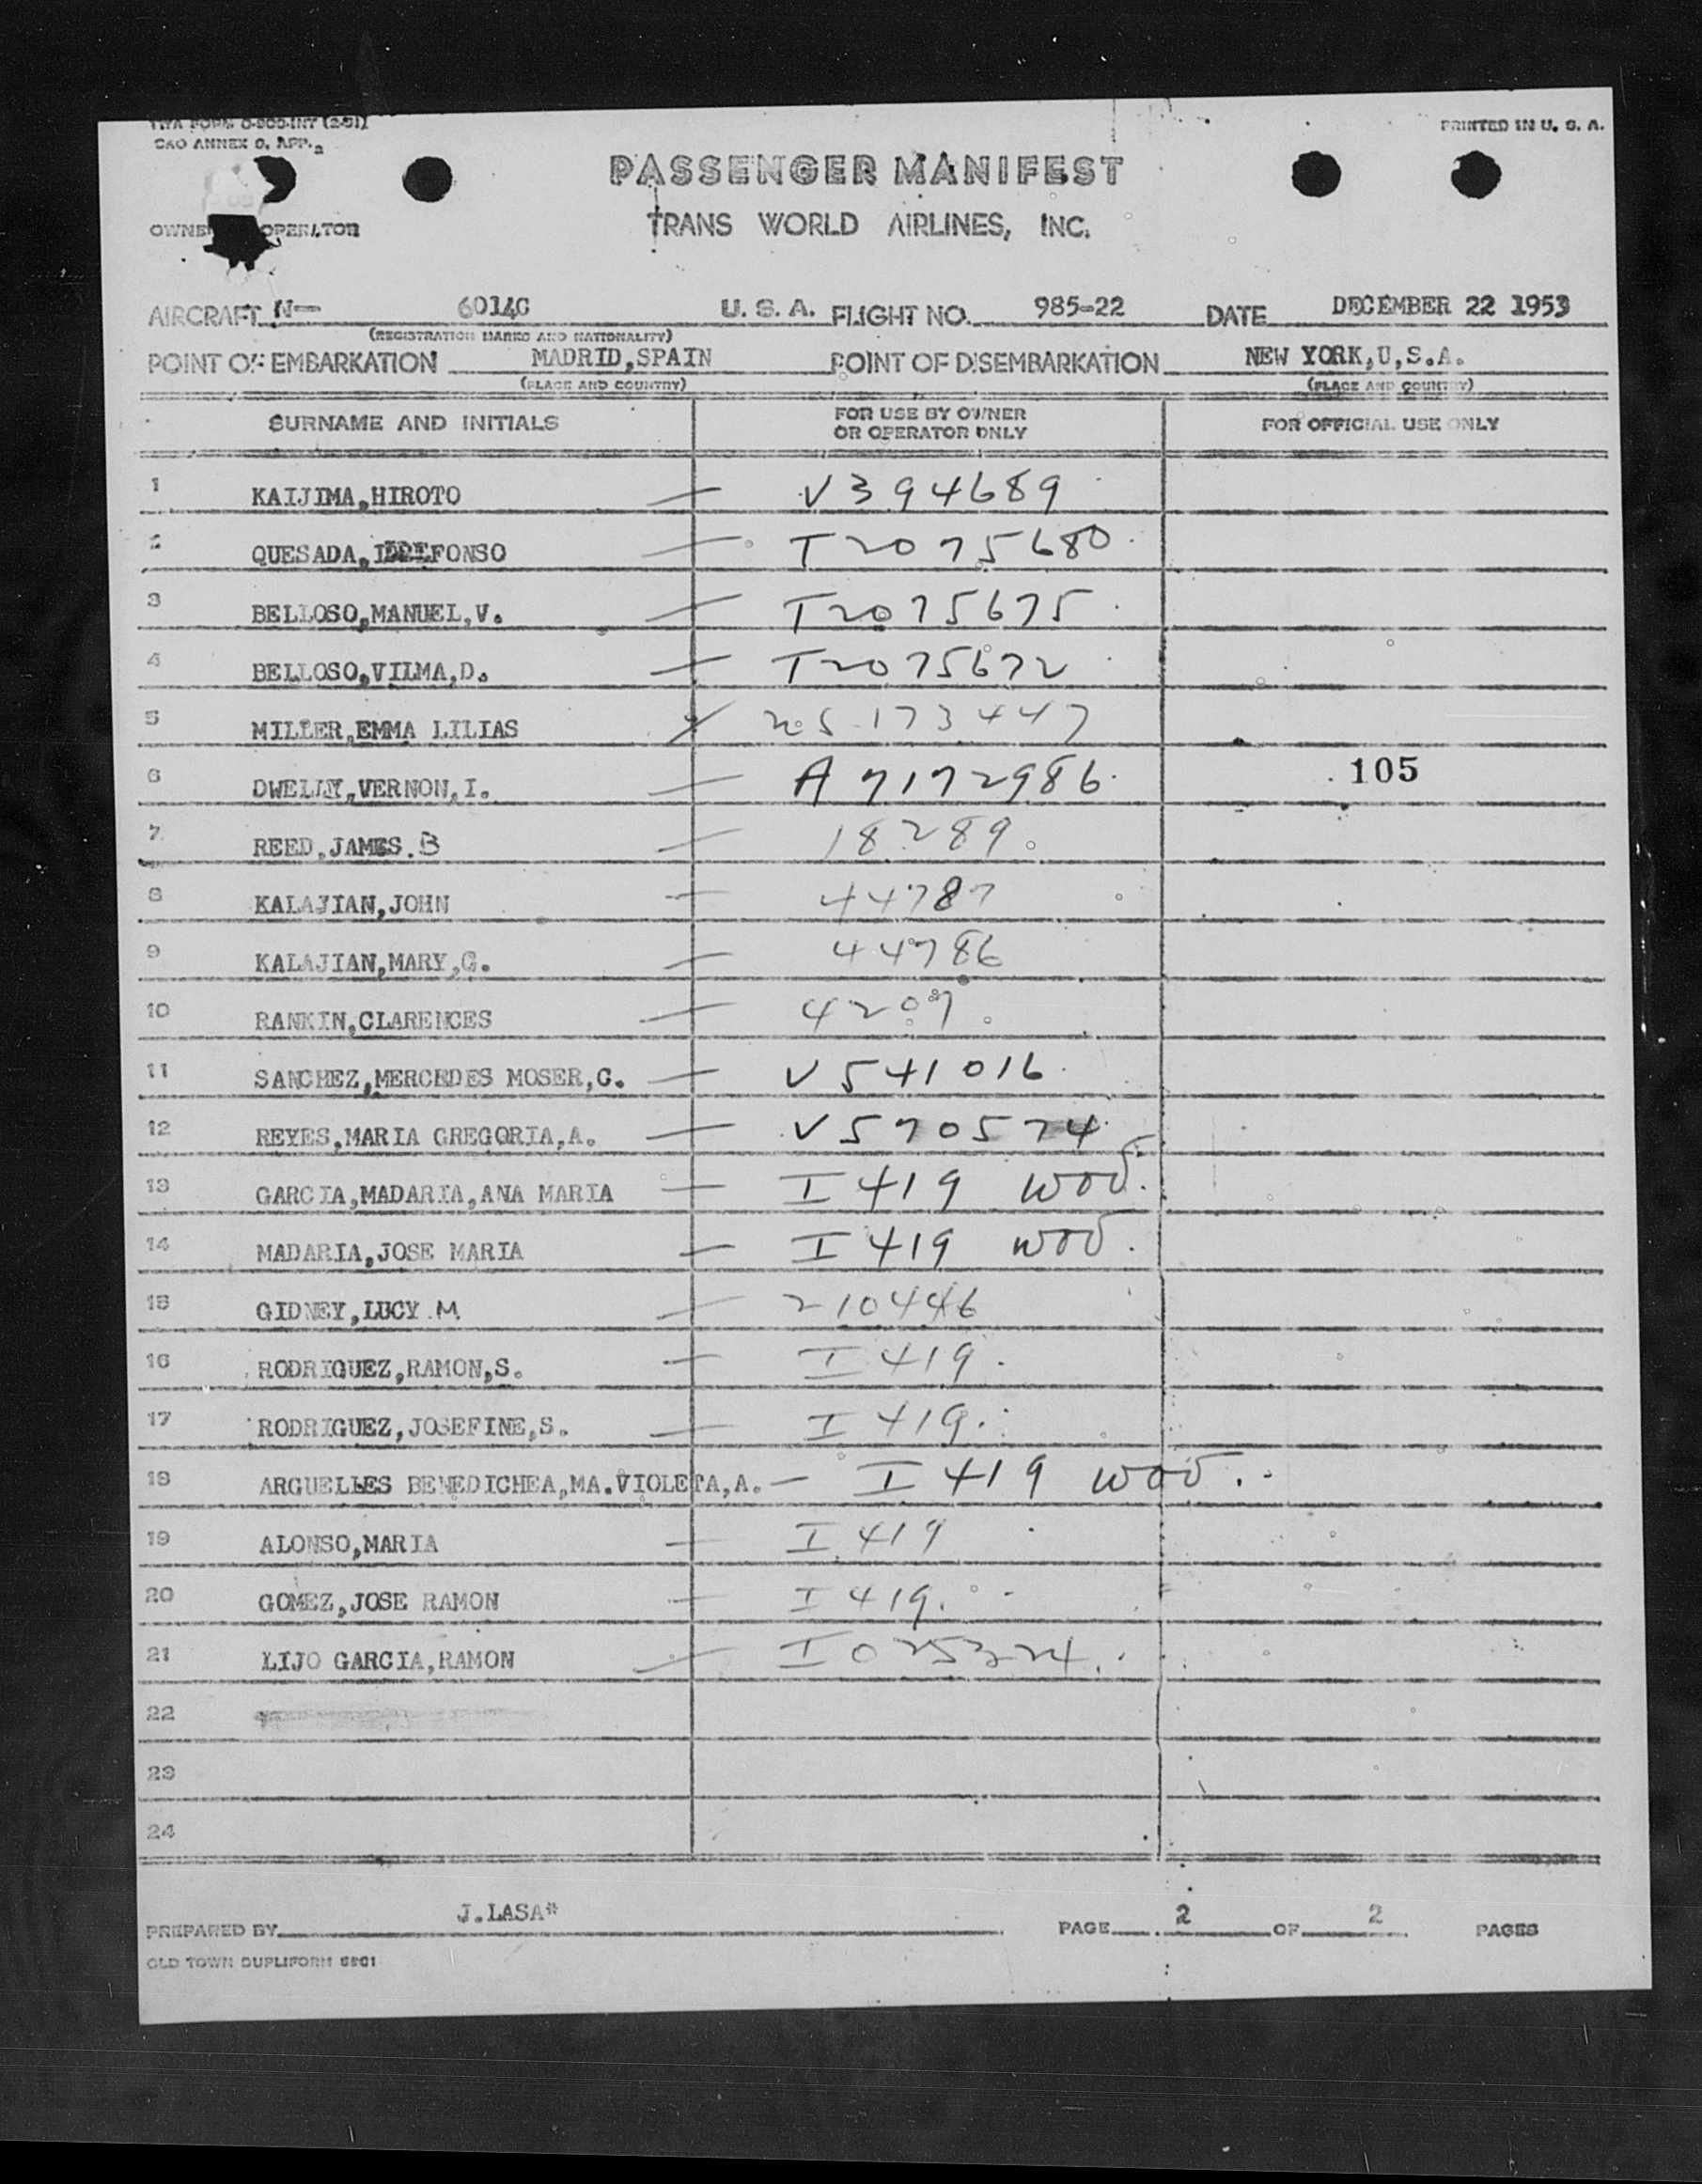 TWA FORM O-800-INT (2-51) PRINTED IN U. S. A.
CAO ANNEX 9, APP. 2
PASSENGER MANIFEST
OPERATOR TRANS WORLD AIRLINES, INC.
AIRCRAFT N- 6014C U. S. A. FLIGHT NO. 985-22 DATE DECEMBER 22 1953
(REGISTRATION MARKS AND NATIONALITY)
POINT OF EMBARKATION MADRID,SPAIN POINT OF DISEMBARKATION NEW YORK,U,S.A.
(PLACE AND COUNTRY) (PLACE AND COUNTRY)
SURNAME AND INITIALS FOR USE BY OWNER OR OPERATOR ONLY FOR OFFICIAL USE ONLY
1 KAIJIMA,HIROTO — V394689
2 QUESADA, — T2075680
3 BELLOSO,MANUEL,V. — T2075675
4 BELLOSO,VILMA,D. — T2075672
5 MILLER,EMMA LILIAS 173447
6 DWELLY,VERNON,I. — A7172986 105
7 REED,JAMES.B — 18289
8 KALAJIAN,JOHN — 44787
9 KALAJIAN,MARY,G. — 44786
10 RANKIN,CLARENCES — 4207
11 SANCHEZ,MERCEDES MOSER,G. — V541016
12 REYES,MARIA GREGORIA,A. — V570574
13 GARCIA,MADARIA,ANA MARIA — I 419 WOV
14 MADARIA,JOSE MARIA — I 419 WOV
15 GIDNEY,LUCY.M — 210446
16 RODRIGUEZ,RAMON,S. — I 419
17 RODRIGUEZ,JOSEFINE,S. — I 419
18 ARGUELLES BENEDICHEA,MA.VIOLETA,A. — I 419 WOV
19 ALONSO,MARIA — I 419
20 GOMEZ,JOSE RAMON — I 419
21 LIJO GARCIA,RAMON —
22
23
24
PREPARED BY J.LASA* PAGE 2 OF 2 PAGES
OLD TOWN DUPLIFORM